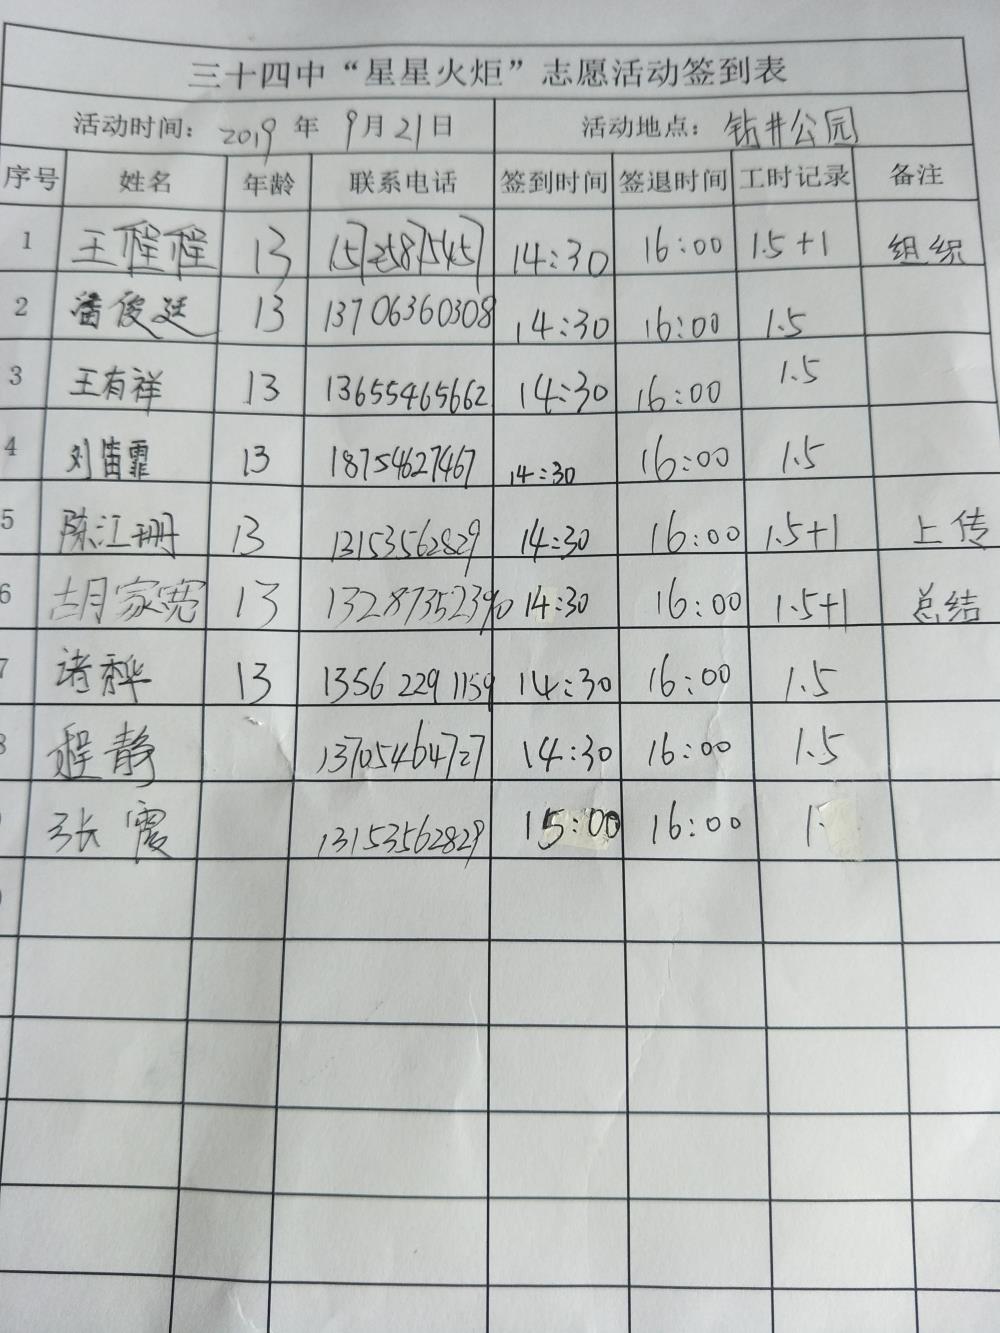 三十四中“星星火炬”志愿活动签到表
活动时间：2019年9月21日 活动地点：钻井公园
序号 姓名 年龄 联系电话 签到时间 签退时间 工时记录 备注
1 王程程 13 15725875457 14:30 16:00 1.5+1 组织
2 潘俊廷 13 13706360308 14:30 16:00 1.5
3 王有祥 13 13655465662 14:30 16:00 1.5
4 刘笛霏 13 18754627467 14:30 16:00 1.5
5 陈江珊 13 13153562829 14:30 16:00 1.5+1 上传
6 胡家宽 13 13287352390 14:30 16:00 1.5+1 总结
7 13 1356 229 1159 14:30 16:00 1.5
8 程静 13705464727 14:30 16:00 1.5
张震 13153562829 15:00 16:00 1.